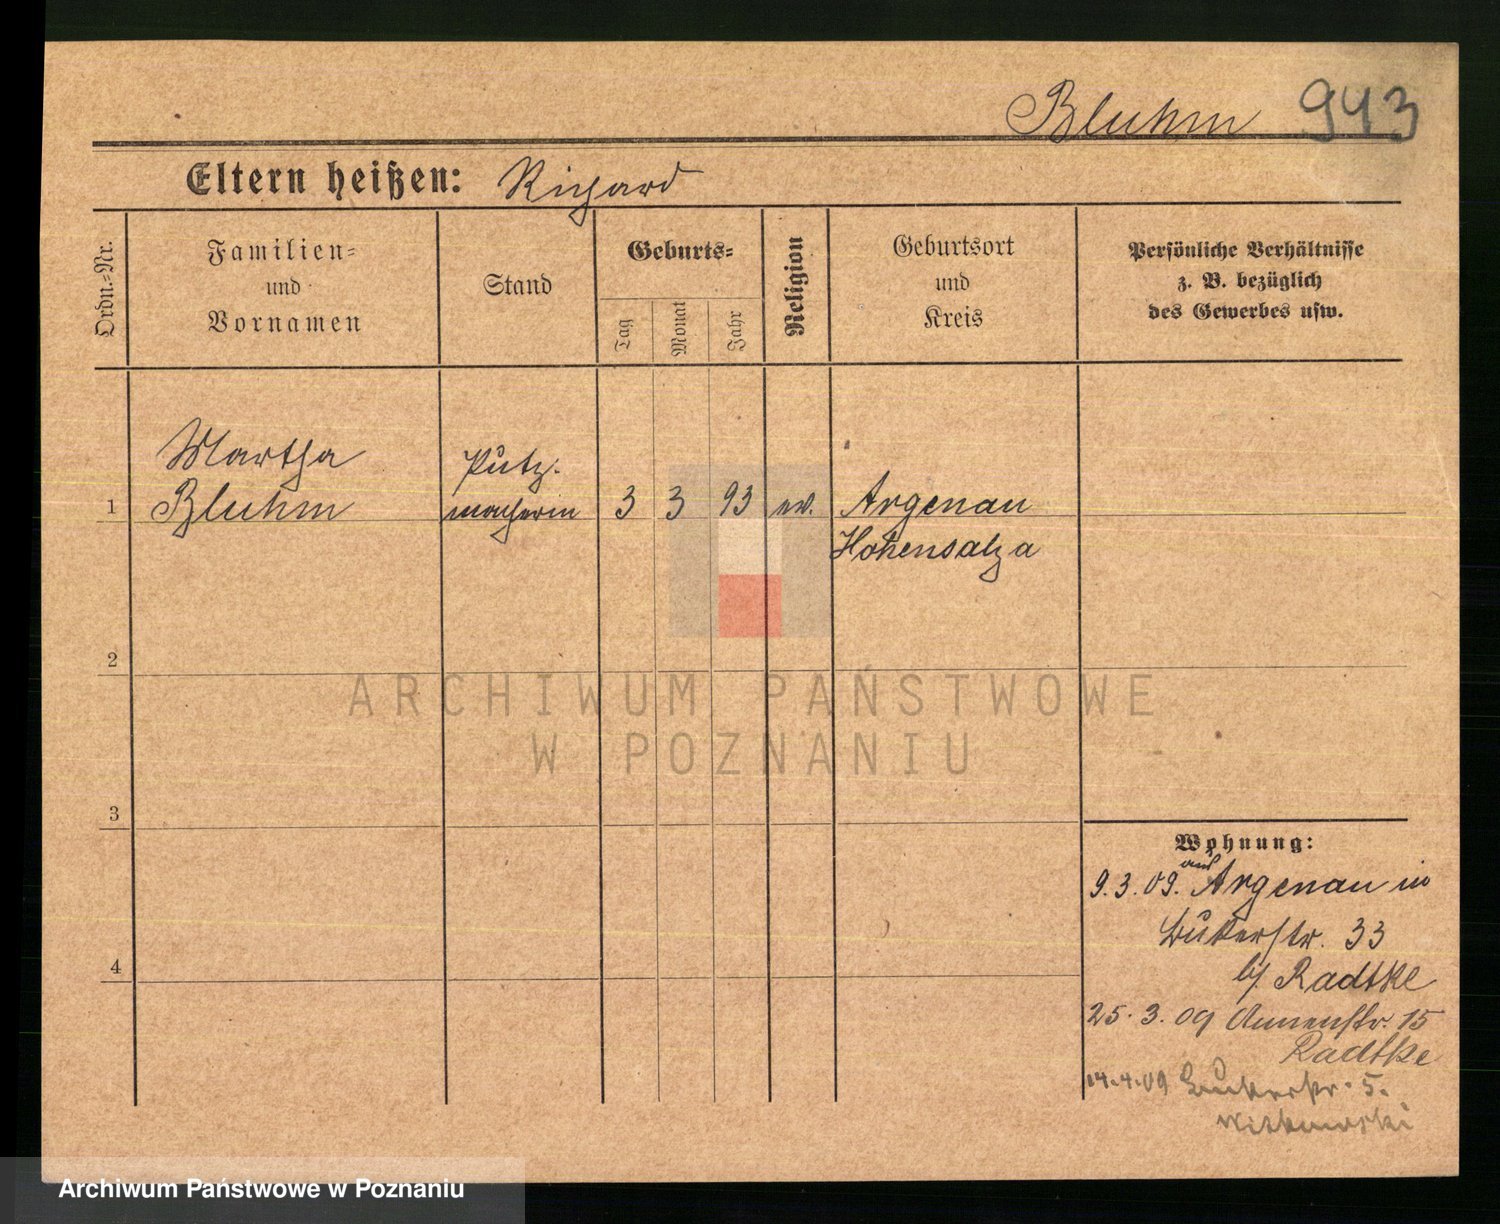 Bluhm 943
Eltern heißen: Richard
Ordn.-Nr.
Familien-
und
Vornamen
Stand
Geburts-
Tag
Monat
Jahr
Religion
Geburtsort
und
Kreis
Persönliche Verhältnisse
z. B. bezüglich
des Gewerbes usw.
Martha
Bluhm
Putz-
macherin
1
3 3 93 ev.
Argenau
Hohensalza
2
3
4
ARCHIWUM PAŃSTWOWE
W POZNANIU
Wohnung:
9.3.09. aus Argenau in
Bukerstr. 33
b/ Radtke
25.3.09 Annenstr. 15
Radtke
14.4.09 Bukerstr. 5.
Witkowski
Archiwum Państwowe w Poznaniu